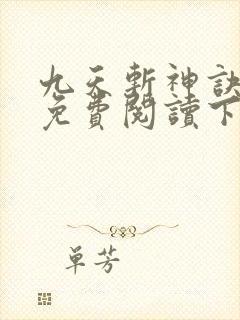 九天斬神訣
免費閱讀下
單芳